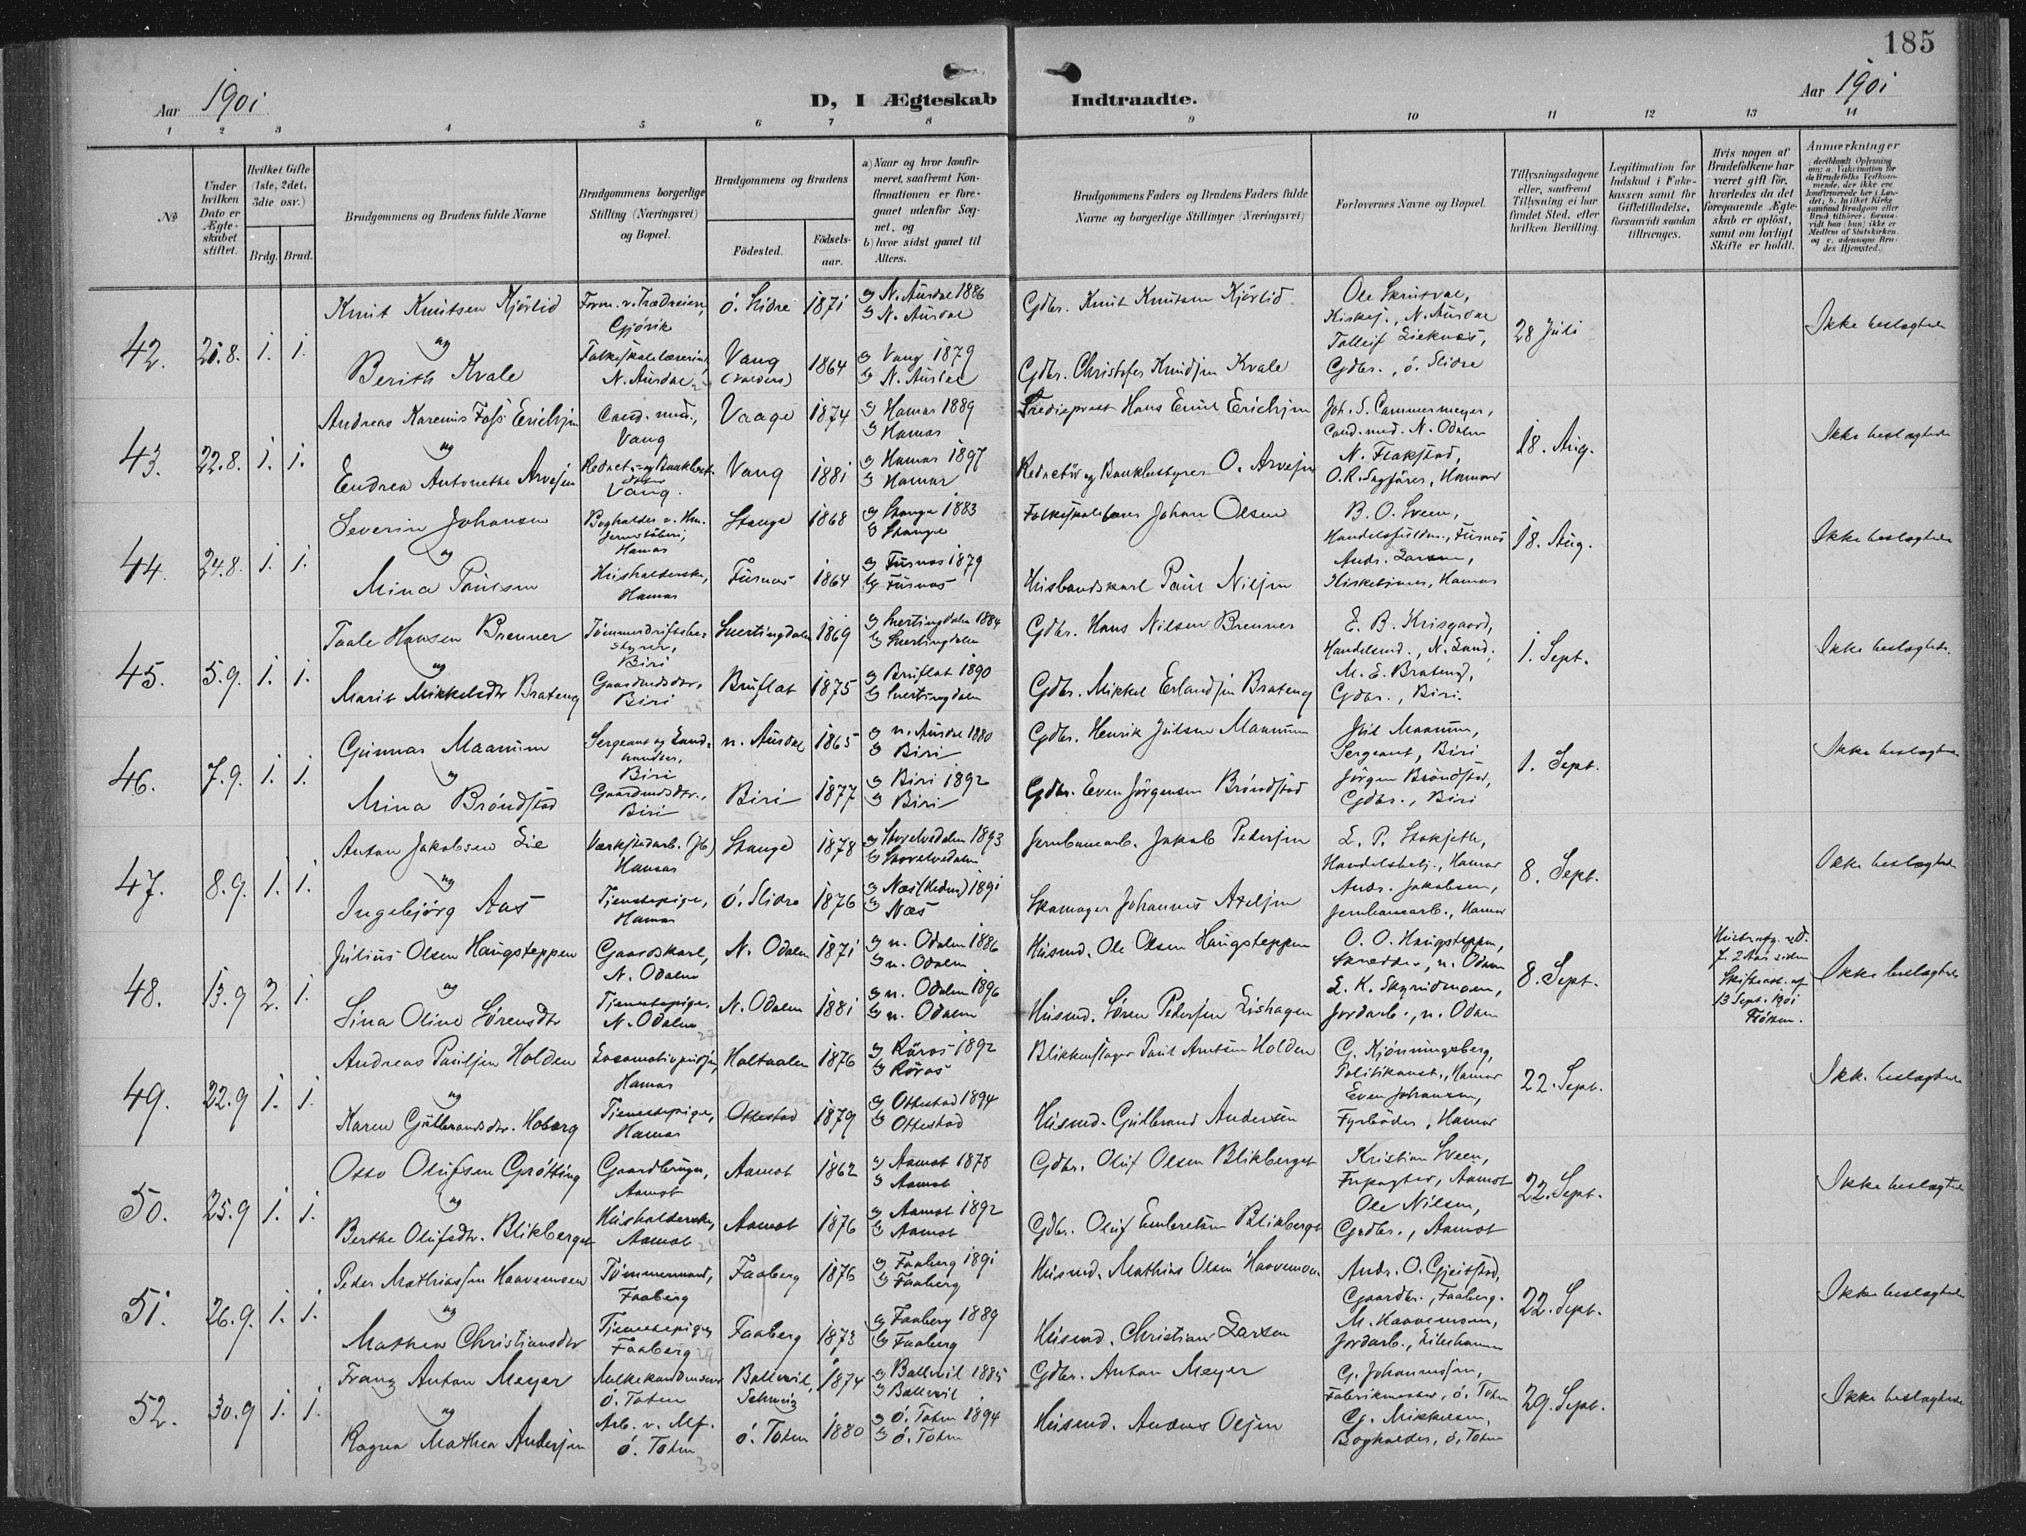 185
Aar 1901
D, I Ægteskab Indtraadte.
Aar 1901
1 2 3 4 5 6 7 8 9 10 11 12 13 14
№
Under hvilken Dato er Ægteskabet stiftet.
Hvilket Gifte (1ste, 2det, 3dte osv.)
Brdg. Brud.
Brudgommens og Brudens fulde Navne
Brudgommens borgerlige Stilling (Næringsvei) og Bopæl.
Brudgommens og Brudens
Fødested.
Fødsels-aar.
a) Naar og hvor konfirmeret, saafremt Konfirmationen er foregaaet udenfor Sognet, og
b) hvor sidst gaaet til Alters.
Brudgommens Faders og Brudens Faders fulde Navne og borgerlige Stillinger (Næringsvei)
Forlovernes Navne og Bopæl.
Tillysningsdagene eller, saafremt Tillysning ei har fundet Sted, efter hvilken Bevilling.
Legitimation for Indskud i Enkekassen samt for Giftetilladelse, forsaavidt saadan tiltrænges.
Hvis nogen af Brudefolkene har været gift før, hvorledes da det foregaaende Ægteskab er opløst, samt om lovligt Skifte er holdt.
Anmærkninger
42. 21.8. 1. 1.
Knut Knutsen Kjørlid
og
Berith Kvale
Gjøvik
Folkeskolelærerinde, N. Aurdal
Ø. Slidre 1871
Vang (Valders) 1864
a) N. Aurdal 1886
b) N. Aurdal
a) Vang 1879
b) N. Aurdal
Gdbr. Knut Knutsen Kjørlid
Gdbr. Christofer Knudsen Kvale
Ole Skrutvol,
Kirkesj., N. Aurdal
Gdbr., Ø. Slidre
28 Juli
Ikke beslægtede
43. 22.8. 1. 1.
Andreas Karenus Foss Erichsen
og
Endrea Antonette Arvesen
Cand. med., Vang
Vang.
Vaage 1874
Vang 1881
a) Hamar 1889
b) Hamar
a) Hamar 1897
b) Hamar
Hans Emil Erichsen
Redaktør og Bankbestyrer O. Arvesen
Joh. S. Cammermeyer,
Cand. med. N. Odalen
N. Flakstad,
O.R. Sagfører, Hamar
18. Aug.
Ikke beslægtede
44. 24.8. 1. 1.
Severin Johansen
og
Mina Paulsen
Hamar
Husholderske, Hamar
Stange 1868
Furnes 1864
a) Stange 1883
b) Stange
a) Furnes 1879
b) Furnes
Folkeskolelærer Johan Olsen
Husbondskarl Paul Nilsen
B. O. Sveen,
Handelsfuldm., Furnes
Andr. Larsen,
Hamar
18. Aug.
Ikke beslægtede
45. 5.9. 1. 1.
Paale Hansen Brenner
og
Marit Mikkelsdtr Brateng
Tømmerdriftsbestyrer, Biri
Gaardmdsdtr., Biri
Snertingdalen 1869
Bruflat 1875
a) Snertingdalen 1884
b) Snertingdalen
a) Bruflat 1890
b) Snertingdalen
Gdbr. Hans Nilsen Brenner
Gdbr. Mikkel Erlandsen Brateng
E. B. Krisgaard,
Handelsmd., N. Land.
M. E. Brateng,
Gdbr., Biri.
1. Sept.
Ikke beslægtede.
46. 7.9. 1. 1.
Gunnar Maanum
og
Mina Brøndstad
Sergeant og Landhandler, Biri
Gaardmdsdtr., Biri
N. Aurdal 1865
Biri 1877
a) N. Aurdal 1880
b) Biri
a) Biri 1892
b) Biri
Gdbr. Henrik Julsen Maanum
Gdbr. Even Jørgensen Brøndstad
Jul Maanum,
Sergeant, Biri
Jørgen Brøndstad,
Gdbr., Biri
1. Sept.
Ikke beslægtede
47. 8.9. 1. 1.
Anton Jakobsen Lie
og
Ingebjørg Aas
Værkstedarb. (Jb) Hamar
Tjenestepige, Hamar
Stange 1878
Ø. Slidre 1876
a) Storelvedalen 1893
b) Storelvedalen
a) Næs (Hedm) 1891
b) Næs
Jernbanearb. Jakob Pedersen
Skomager Johannes Axelsen
L. P. Stokseth,
Handelsbetj., Hamar
Andr. Jakobsen,
Jernbanearb., Hamar
8. Sept.
Ikke beslægtede
48. 13.9 2. 1.
Julius Olsen Haugsteppen
og
Sina Oline Sørensdtr
Gaardskarl, N. Odalen
Tjenestepige, N. Odalen
N. Odalen 1871
N. Odalen 1881
a) N. Odalen 1886
b) N. Odalen
a) N. Odalen 1896
b) N. Odalen
Husmd. Ole Olsen Haugsteppen
Husmd. Søren Pedersen Lishagen
O. O. Haugsteppen,
Skrædder, N. Odalen
Jordarb., N. Odalen
8. Sept.
f. 2 Aar siden
Skifteatt. af 13 Sept. 1901
Ikke beslægtede
49. 22.9 1. 1.
Andreas Paulsen Holden
og
Karen Gulbrandsdtr. Hoberg
Locomotivpudser, Hamar
Tjenestepige, Hamar
Holtaalen 1876
Ottestad 1879
a) Røros 1892
b) Røros
a) Ottestad 1894
b) Ottestad
Blikkenslager Paul Arntsen Holden
Husmd. Gulbrand Andersen
G. Kjønningsberg,
Politikonst., Hamar
Even Johansen,
Fyrbøder, Hamar
22. Sept.
Ikke beslægtede
50. 25.9 1. 1.
Otto Olufsen Grøtting
og
Berthe Olufsdtr. Blikberget
Gaardbruger, Aamot
Husholderske, Aamot
Aamot 1862
Aamot 1876
a) Aamot 1878
b) Aamot
a) Aamot 1892
b) Aamot
Gdbr. Oluf Olsen Blikberget
Gdbr. Oluf Embretsen Blikberget
Kristian Sveen,
Forpagter, Aamot
Ole Nilsen,
Gaardbr., Aamot
22. Sept.
Ikke beslægtede
51. 26.9. 1. 1.
Peder Mathiassen Haavemoen
og
Mathea Christiansdtr
Tømmermand, Faaberg
Tjenestepige, Faaberg
Faaberg 1876
Faaberg 1873
a) Faaberg 1891
b) Faaberg
a) Faaberg 1889
b) Faaberg
Husmd. Mathias Olsen Haavemoen
Husmd. Christian Larsen
Andr. O. Gjeitstad,
Gaardbr., Faaberg.
M. Haavemoen,
Jordarb., Lillehammer
22. Sept.
Ikke beslægtede
52. 30.9 1. 1.
Franz Anton Meyer
og
Ragna Mathea Andersen
Ø. Toten
Arb. v. Mf. Ø. Toten
Ballwil, Schweiz 1874
Ø. Toten 1880
a) Ballwil 1885
b) Ballwil
a) Ø. Toten 1894
b) Ø. Toten
Gdbr. Anton Meyer
Husmd. Anders Olsen
G. Johannessen,
Fabrikmester, Ø. Toten
G. Mikkelsen,
Bogholder, Ø. Toten
29. Sept.
Ikke beslægtede